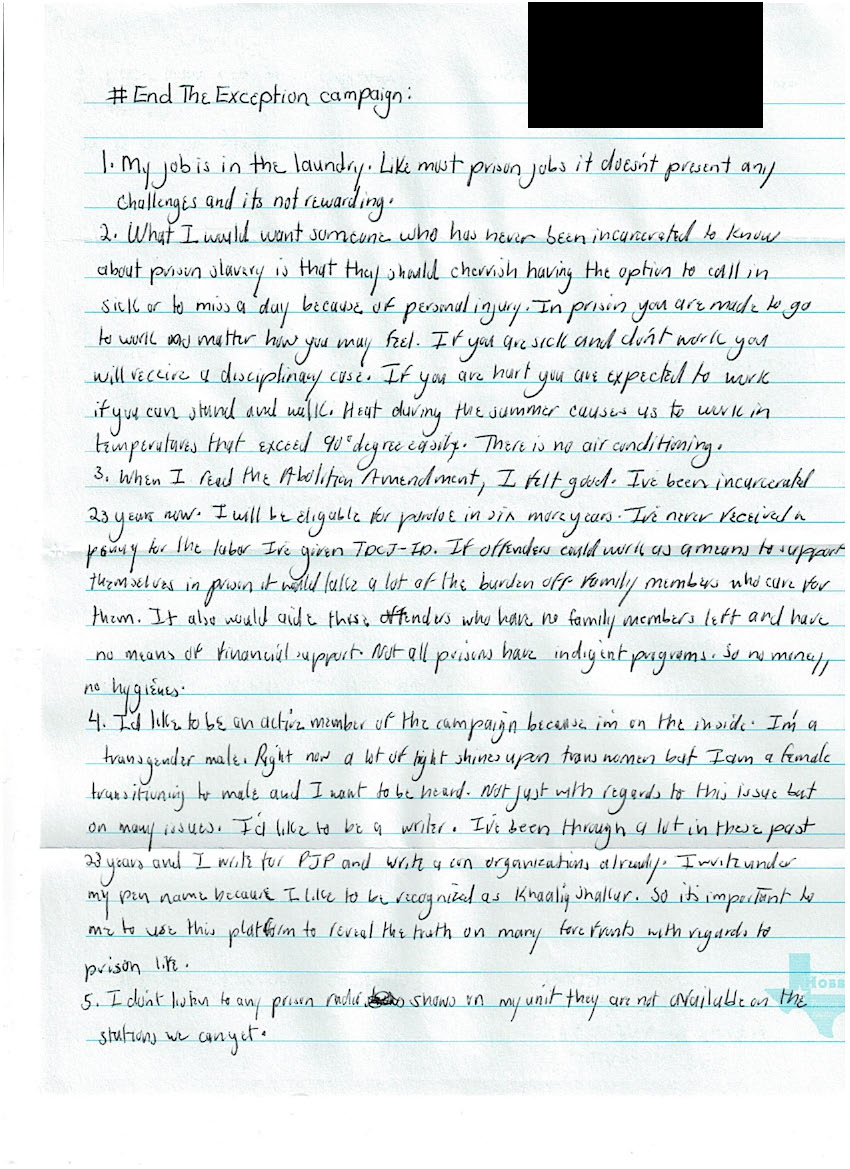 # End The Exception campaign:
1. My job is in the laundry. Like most prison jobs it doesn't present any
challenges and its not rewarding.
2. What I would want someone who has never been incarcerated to know
about prison slavery is that they should cherrish having the option to call in
sick or to miss a day because of personal injury. In prison you are made to go
to work no matter how you may feel. If you are sick and don't work you
will receive a disciplinary case. If you are hurt you are expected to work
if you can stand and walk. Heat during the summer causes us to work in
temperatures that exceed 90° degree easily. There is no air conditioning.
3. When I read the Abolition Amendment, I felt good. I've been incarcerated
23 years now. I will be eligable for parole in six more years. I've never received a
penny for the labor I've given TDCJ-ID. If offenders could work as a means to support
themselves in prison it would take a lot of the burden off family members who care for
them. It also would aide those offenders who have no family members left and have
no means of financial support. Not all prisons have indigent programs. So no money,
no hygienes.
4. I'd like to be an active member of the campaign because im on the inside. I'm a
transgender male. Right now a lot of light shines upon trans women but I am a female
transitioning to male and I want to be heard. Not just with regards to this issue but
on many issues. I'd like to be a writer. I've been through a lot in these past
23 years and I write for PJP and write a con organizations already. I write under
my pen name because I like to be recognized as Khaaliq Shakur. So it's important to
me to use this platform to reveal the truth on many forefronts with regards to
prison life.
5. I don't listen to any prison radio shows on my unit they are not available on the
stations we can get.
HOBB